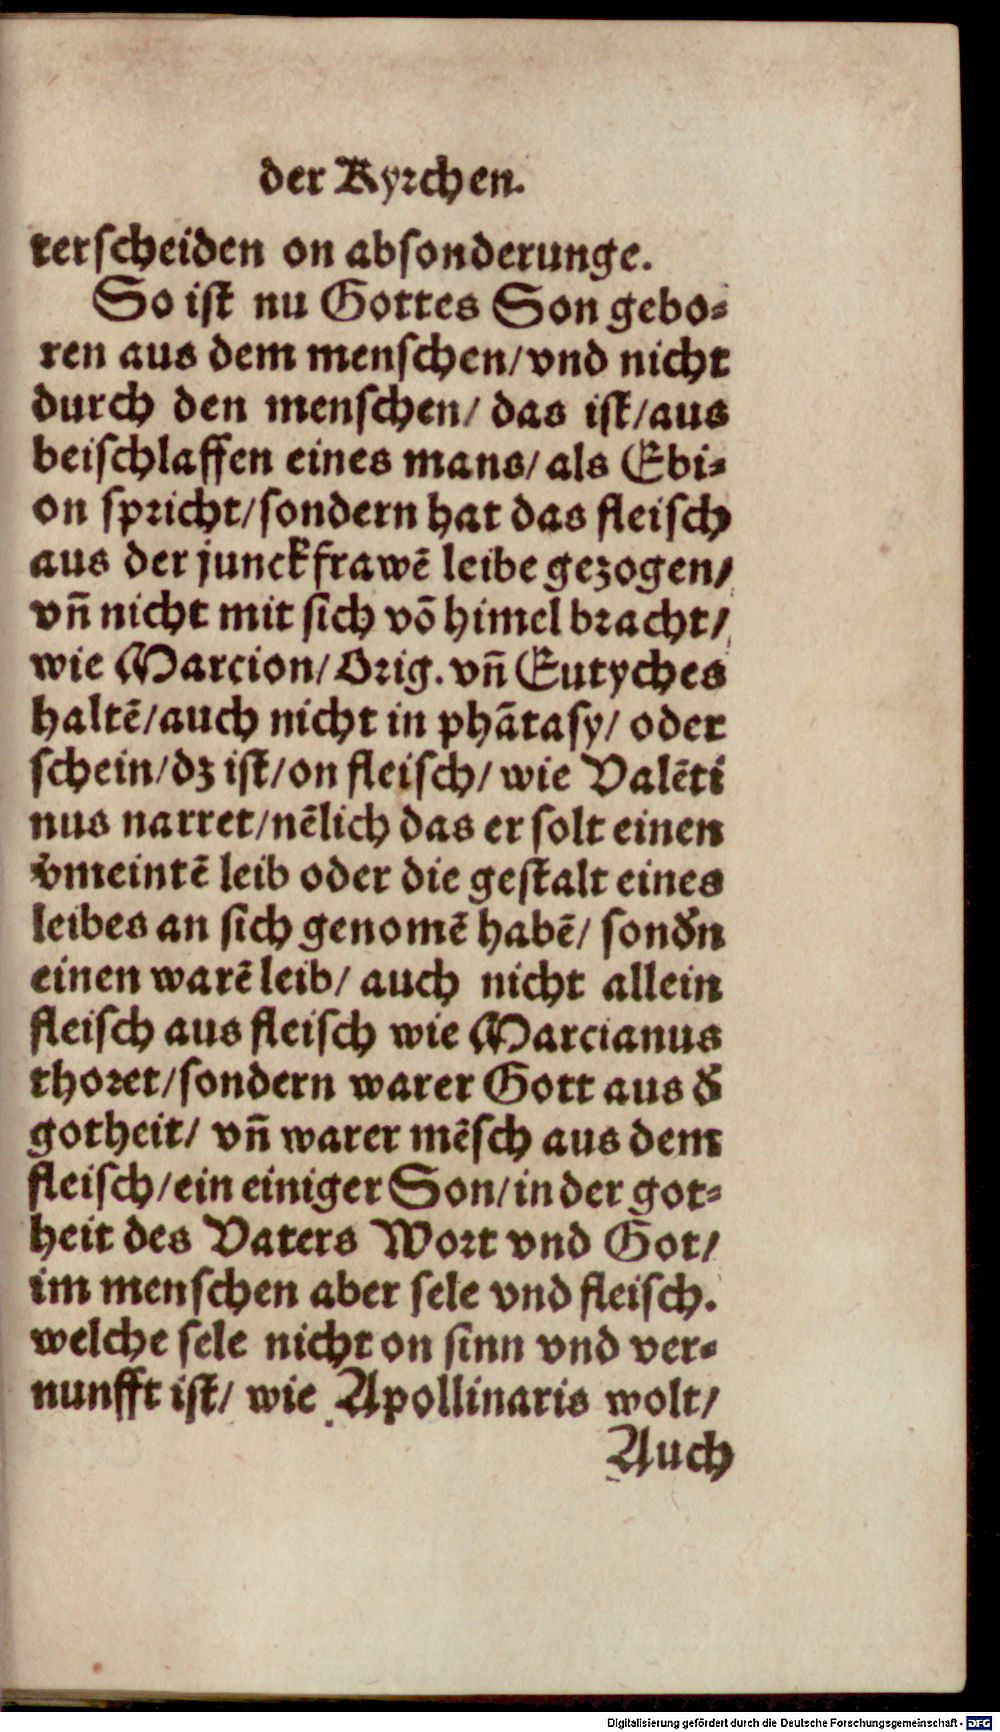 der Kyrchen.
terscheiden on absonderunge.
So ist nu Gottes Son gebo-
ren aus dem menschen/vnd nicht
durch den menschen/ das ist/aus
beischlaffen eines mans/als Ebi-
on spricht/sondern hat das fleisch
aus der junckfrawẽ leibe gezogen/
vñ nicht mit sich võ himel bracht/
wie Marcion/Orig. vñ Eutyches
haltẽ/auch nicht in phãtasy/ oder
schein/dz ist/on fleisch/ wie Valẽti
nus narret/nẽlich das er solt einen
v̄meintẽ leib oder die gestalt eines
leibes an sich genomẽ habẽ/ sonđn
einen warẽ leib/ auch nicht allein
fleisch aus fleisch wie Marcianus
thoret/sondern warer Gott aus đ
gotheit/ vñ warer mẽsch aus dem
fleisch/ein einiger Son/in der got-
heit des Vaters Wort vnd Got/
im menschen aber sele vnd fleisch.
welche sele nicht on sinn vnd ver-
nunfft ist/ wie Apollinaris wolt/
Auch
Digitalisierung gefördert durch die Deutsche Forschungsgemeinschaft - DFG